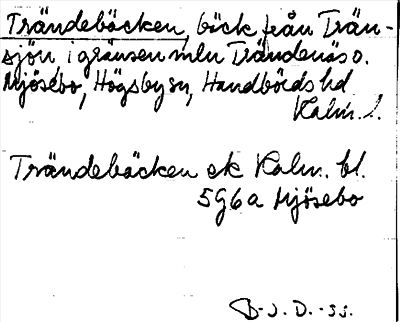 Trändebäcken, bäck från Trän-
sjön i gränsen mln Trändenäs o.
Mjösebo, Högsby sn, Handbörds hd
Kalm. l.
Trändebäcken ek Kalm. bl.
5G6a Mjösebo